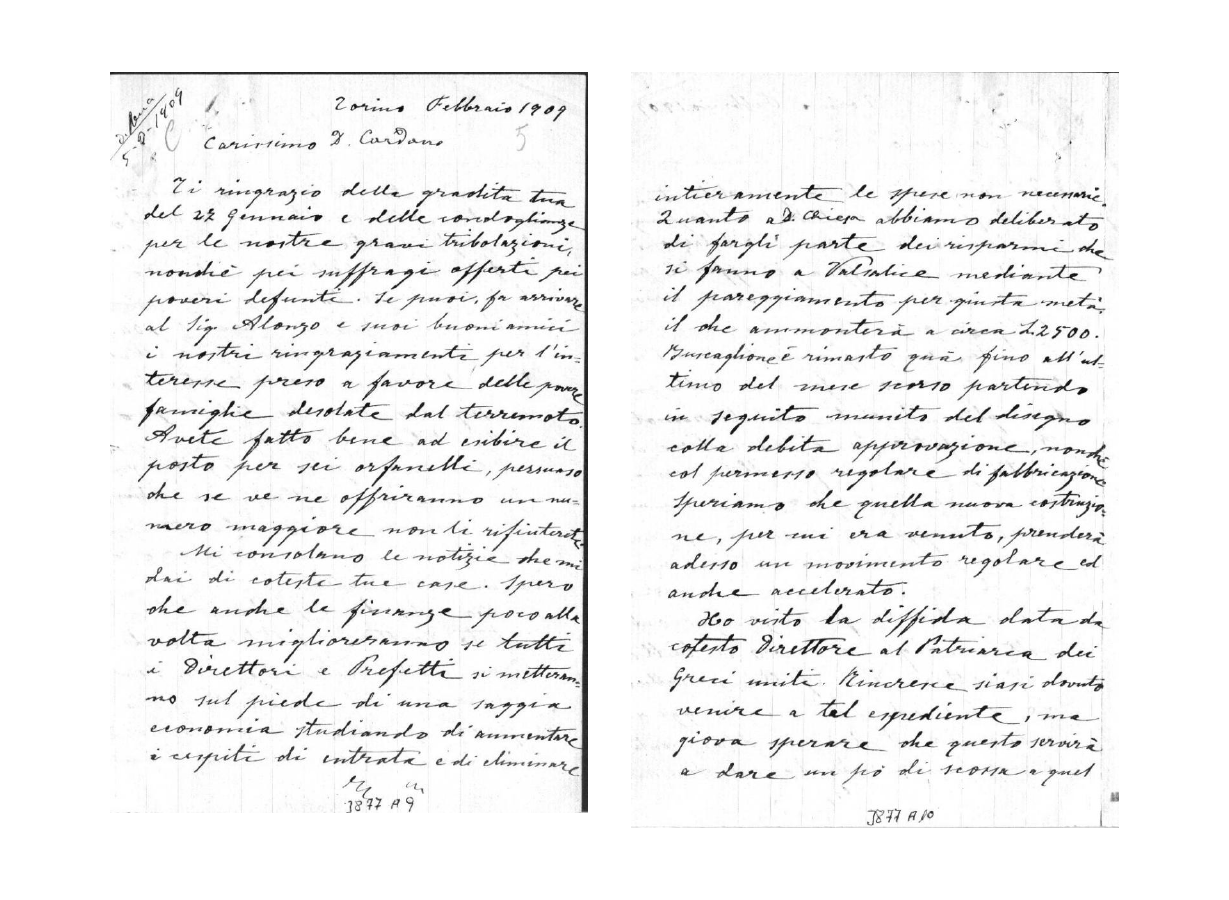 5-2-1909
Torino Febbraio 1909
5
Carissimo D. Cardano
Ti ringrazio della gradita tua
del 22 Gennaio e delle condoglianze
per le nostre gravi tribolazioni,
nonchè pei suffragi offerti pei
poveri defunti. Se puoi, fa arrivare
al Sig. Alonzo e suoi buoni amici
i nostri ringraziamenti per l'in-
teresse preso a favore delle povere
famiglie desolate dal terremoto.
Avete fatto bene ad esibire il
posto per sei orfanelli, persuaso
che se ve ne offriranno un nu-
mero maggiore non li rifiuterete.
Mi consolano le notizie che mi
dai di coteste tue case. Spero
che anche le finanze poco alla
volta miglioreranno se tutti
i Direttori e Prefetti si metteran-
no sul piede di una saggia
economia studiando di aumentare
i cespiti di entrata e di eliminare
3877 A 9
intieramente le spese non necessarie.
Quanto a D. Chiesa abbiamo deliberato
di fargli parte dei risparmi che
si fanno a Valsalice mediante
il pareggiamento per giusta metà,
il che ammonterà a circa L. 2500.
Buscaglione è rimasto quà fino all'ul-
timo del mese scorso partendo
in seguito munito del disegno
colla debita approvazione, nonchè
col permesso regolare di fabbricazione.
Speriamo che quella nuova costruzio-
ne, per cui era venuto, prenderà
adesso un movimento regolare ed
anche accelerato.
Ho visto la diffida data da
cotesto Direttore al Patriarca dei
Greci uniti. Rincresce siasi dovuto
venire a tal espediente, ma
giova sperare che questo servirà
a dare un pò di scossa a quel
3877 A 10